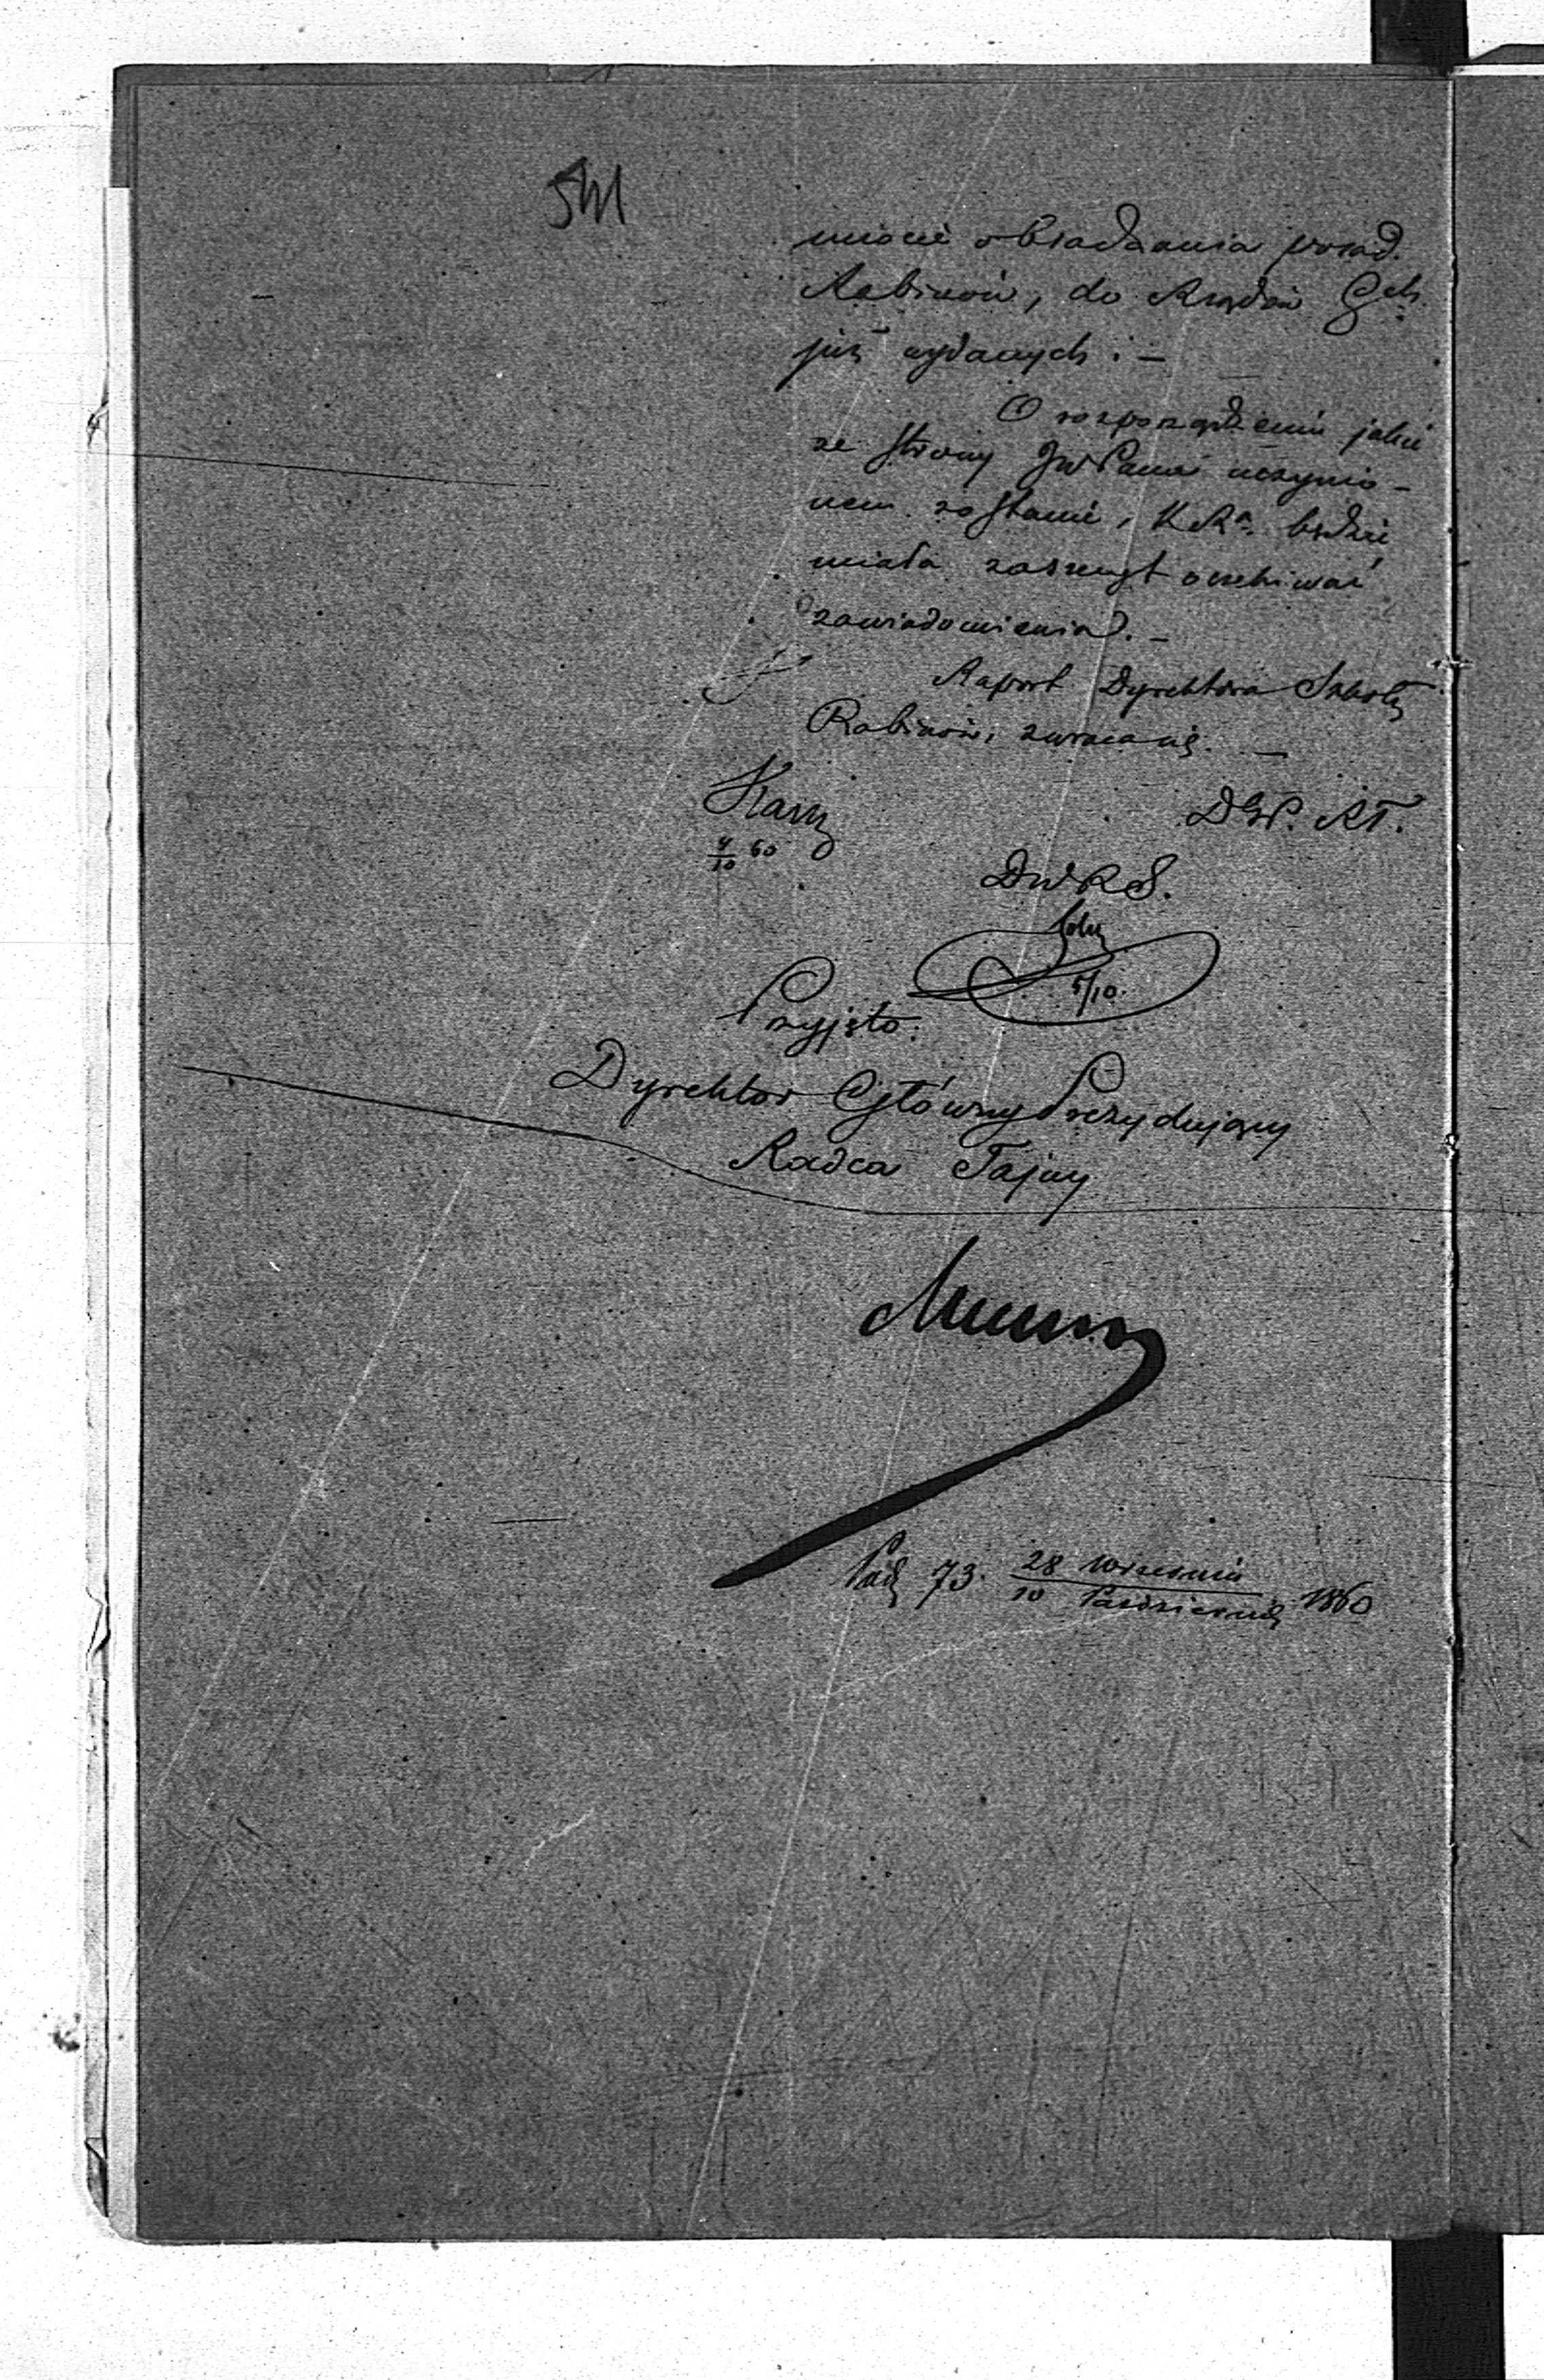 541
miocie obsadzania posad
Rabinów, do Rządów Gch
już wydanych. —
O rozporządzeniu jakie
ze strony JWPana uczynio-
nem zostanie, KRa. będzie
miała zaszczyt oczekiwać
zawiadomienia. —
Raport Dyrektora Szkoły
Rabinów, zwraca się. —
DGP. RT.
4/10 60
DWRS.
5/10.
Przyjęto.
Dyrektor Główny Prezydujący
Radca Tajny
73. 28 Września / 10 Października 1860